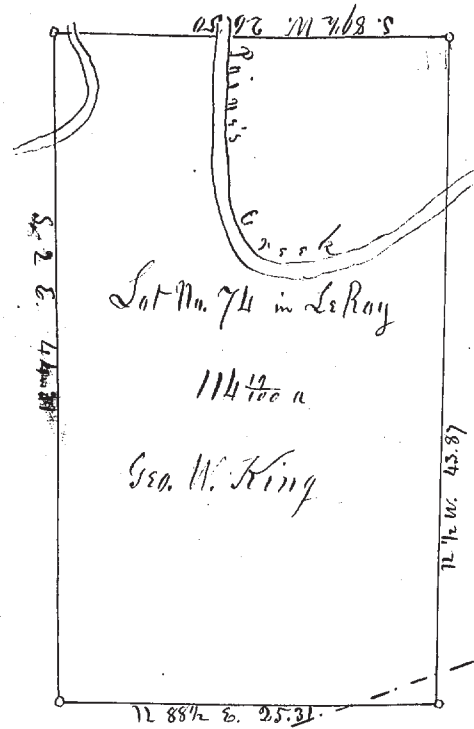 S. 89½ W. 26.50
Prince's Creek
S. 2 E. 44
Lot No. 74 in LeRoy
114 12/100 a
Geo. W. King
N ½ W. 43.87
N 88½ E. 25.31.